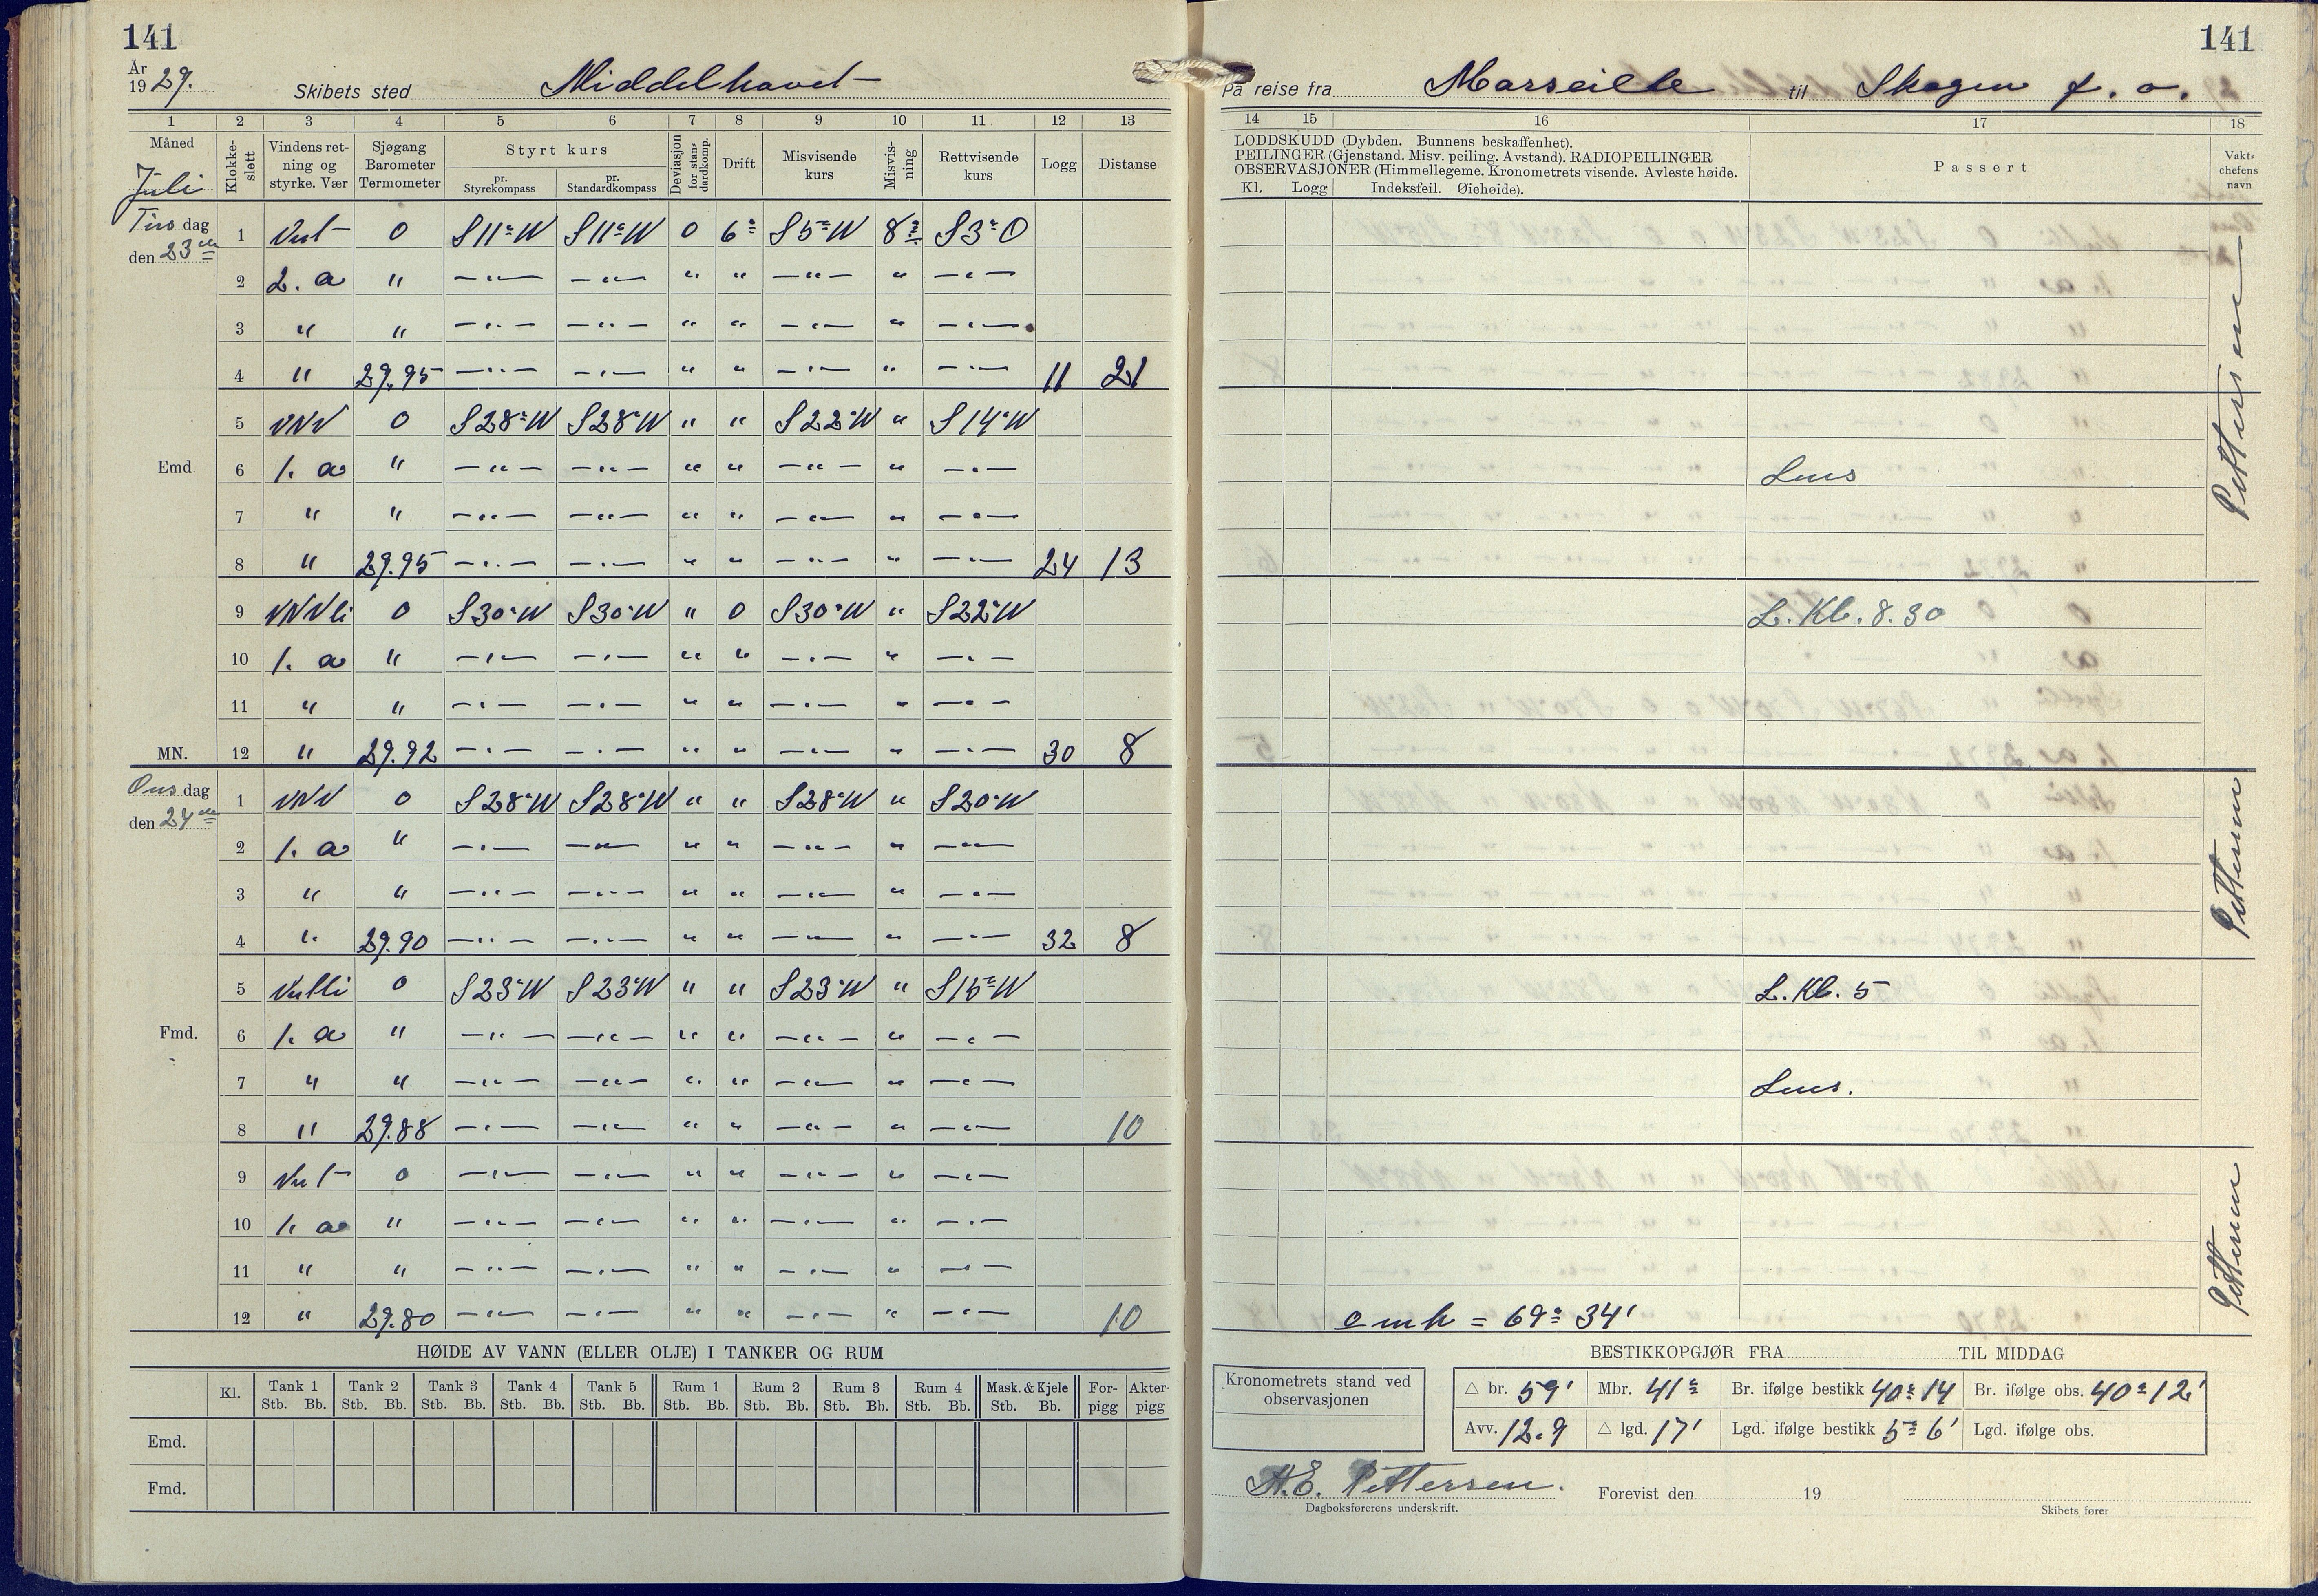 141
141
År
1929.
Skibets sted Middelhavet
På reise fra Marseille til Skagen f. o.
1 2 3 4 5 6 7 8 9 10 11 12 13
14 15 16 17 18
Måned
Juli
Klokkeslett
Vindens retning og styrke. Vær
Sjøgang Barometer Termometer
Styrt kurs
pr. Styrekompass
pr. Standardkompass
Deviasjon for standardkomp.
Drift
Misvisende kurs
Misvisning
Rettvisende kurs
Logg
Distanse
LODDSKUDD (Dybden. Bunnens beskaffenhet).
PEILINGER (Gjenstand. Misv. peiling. Avstand). RADIOPEILINGER
OBSERVASJONER (Himmellegeme. Kronometrets visende. Avleste høide.
Kl. Logg Indeksfeil. Øiehøide).
Passert
Vaktchefens navn
Tirsdag
den 23de
1 Vest 0 S11°W S11°W 0 6° S5°W 8° S3°O
2 2. a " —"— —"— " " —"— " —"—
3 " " —"— —"— " " —"— " —"—
4 " 29.95 —"— —"— " " —"— " —"— 11 21
5 VNV 0 S28°W S28°W " " S22°W " S14°W
Emd. 6 1. a " —"— —"— " " —"— " —"— Lens
7 " " —"— —"— " " —"— " —"—
8 " 29.95 —"— —"— " " —"— " —"— 24 13
Pettersen
9 VNVli 0 S30°W S30°W " 0 S30°W " S22°W L. Kl. 8.30
10 1. a " —"— —"— " " —"— " —"—
11 " " —"— —"— " " —"— " —"—
MN. 12 " 29.92 —"— —"— " " —"— " —"— 30 8
Onsdag
den 24de
1 VNV 0 S28°W S28°W " " S28°W " S20°W
2 1. a " —"— —"— " " —"— " —"—
3 " " —"— —"— " " —"— " —"—
4 " 29.90 —"— —"— " " —"— " —"— 32 8
Pettersen
5 Vestli 0 S23°W S23°W " " S23°W " S15°W L. Kl. 5
Fmd. 6 1. a " —"— —"— " " —"— " —"—
7 " " —"— —"— " " —"— " —"— Lens.
8 " 29.88 —"— —"— " " —"— " —"— 10
9 Vest 0 —"— —"— " " —"— " —"—
10 1. a " —"— —"— " " —"— " —"—
11 " " —"— —"— " " —"— " —"—
12 " 29.80 —"— —"— " " —"— " —"— 10 o mh = 69° 34'
Pettersen
HØIDE AV VANN (ELLER OLJE) I TANKER OG RUM
Kl. Tank 1 Tank 2 Tank 3 Tank 4 Tank 5 Rum 1 Rum 2 Rum 3 Rum 4 Mask. & Kjele Forpigg Akterpigg
Stb. Bb. Stb. Bb. Stb. Bb. Stb. Bb. Stb. Bb. Stb. Bb. Stb. Bb. Stb. Bb. Stb. Bb. Stb. Bb.
Emd.
Fmd.
BESTIKKOPGJØR FRA TIL MIDDAG
Kronometrets stand ved observasjonen
△ br. 59' Mbr. 41° Br. ifølge bestikk 40° 14 Br. ifølge obs. 40° 12'
Avv. 12.9 △ lgd. 17' Lgd. ifølge bestikk 5° 6' Lgd. ifølge obs.
H.E. Pettersen.
Dagboksførerens underskrift.
Forevist den 19
Skibets fører